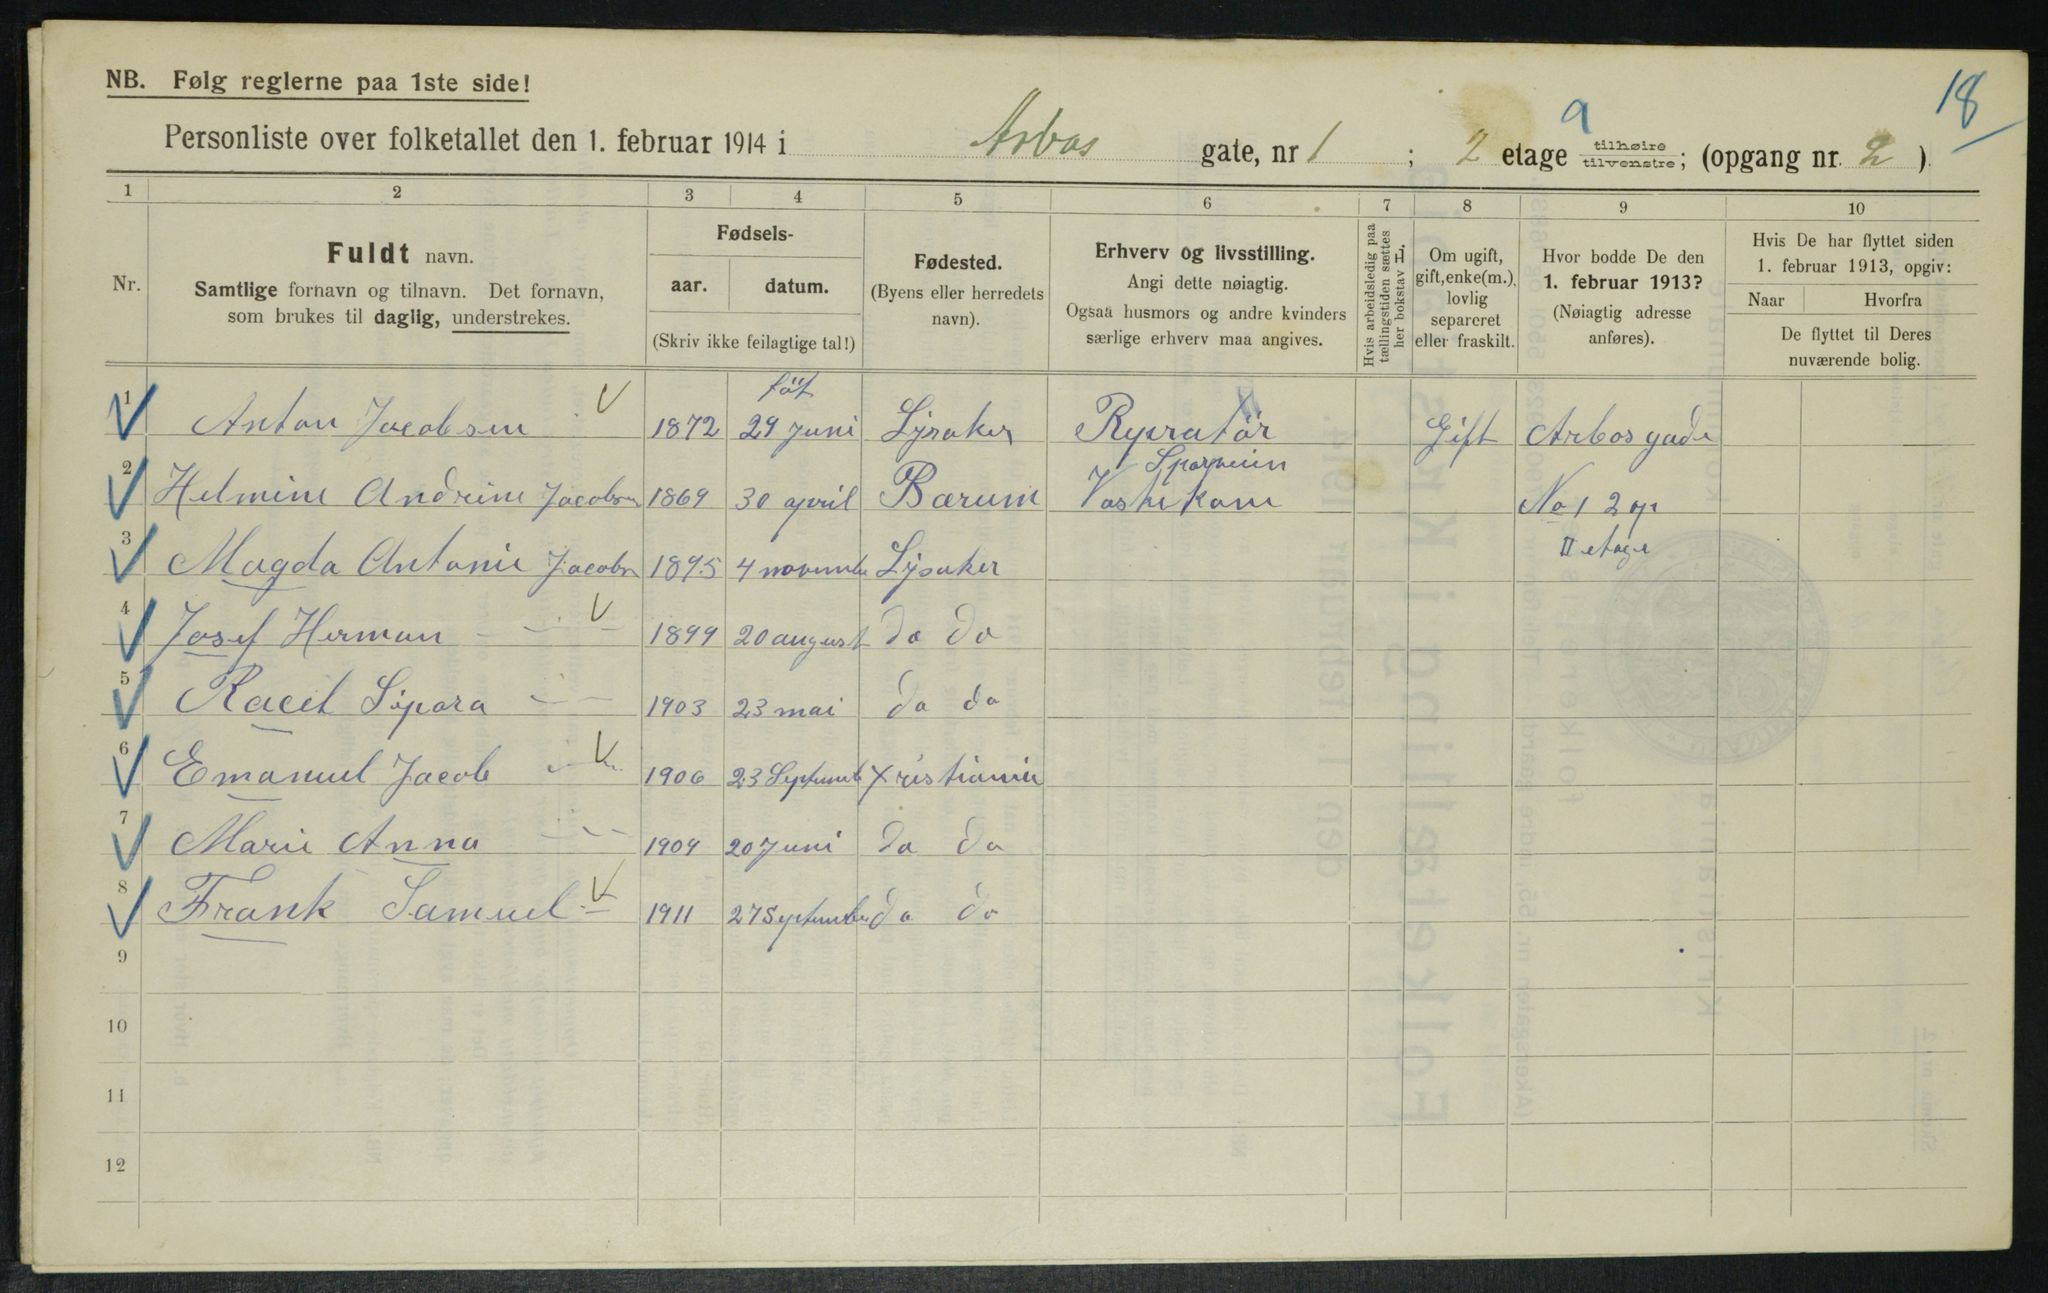 18
NB. Følg reglerne paa 1ste side!
Personliste over folketallet den 1. februar 1914 i Arbos gate, nr 1 ; 2 etage a tilhøire tilvenstre; (opgang nr. 2 )
1 2 3 4 5 6 7 8 9 10
Nr.
Fuldt navn.
Samtlige fornavn og tilnavn. Det fornavn,
som brukes til daglig, understrekes.
Fødsels-
aar. datum.
(Skriv ikke feilagtige tal!)
Fødested.
(Byens eller herredets
navn).
Erhverv og livsstilling.
Angi dette nøiagtig.
Ogsaa husmors og andre kvinders
særlige erhverv maa angives.
Hvis arbeidsledig paa
tællingstiden sættes
her bokstav L.
Om ugift,
gift, enke(m.),
lovlig
separeret
eller fraskilt.
Hvor bodde De den
1. februar 1913?
(Nøiagtig adresse
anføres).
Hvis De har flyttet siden
1. februar 1913, opgiv:
Naar Hvorfra
De flyttet til Deres
nuværende bolig.
föt
1 Anton Jacobsen V 1872 29 Juni Lysaker Repratör Gift Arbos gade
Sporveien
2 Helmine Andrine Jacobsen 1869 30 april Bærum Vaskekone No 1 2 op
II etage
3 Magda Antonie Jacobsn 1895 4 novembe Lysaker
4 Josef Herman - - V - 1899 20 august do do
5 Racel Sipora - - 1903 23 mai do do
6 Emanuel Jacob - V - 1906 23 Septembe Kristiania
7 Marie Anna - - - 1909 20 Juni do do
8 Frank Samuel V - 1911 27 September do do
9
10
11
12